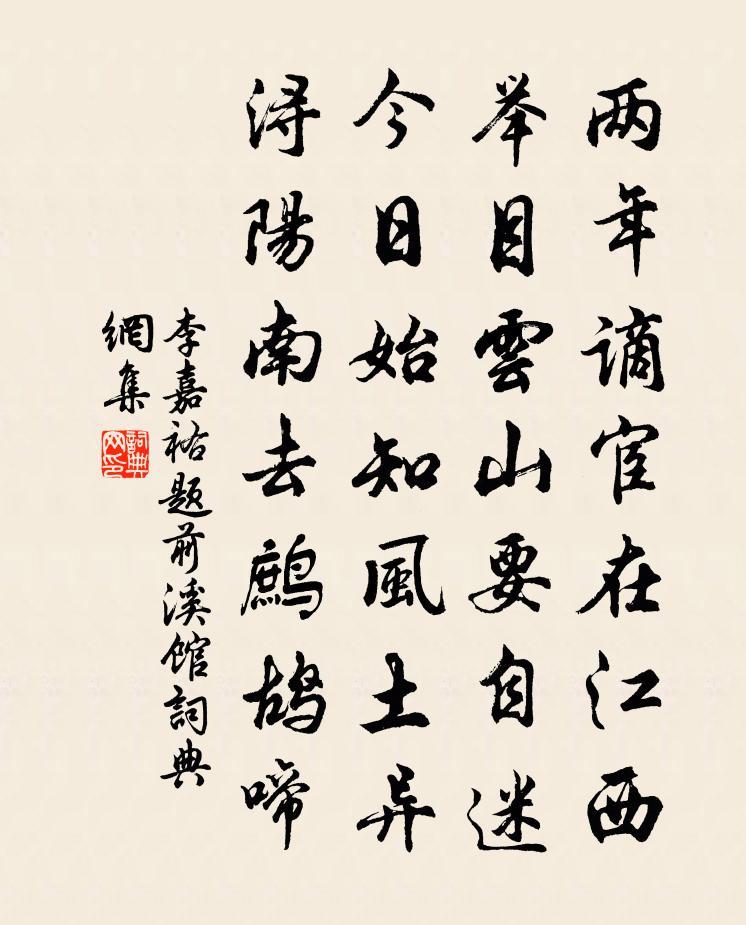 两年谪宦在江西
举目雲山要自迷
今日始知風土异
浔陽南去鷓鴣啼
李嘉祐题前溪馆詞典
網集
詞典网印